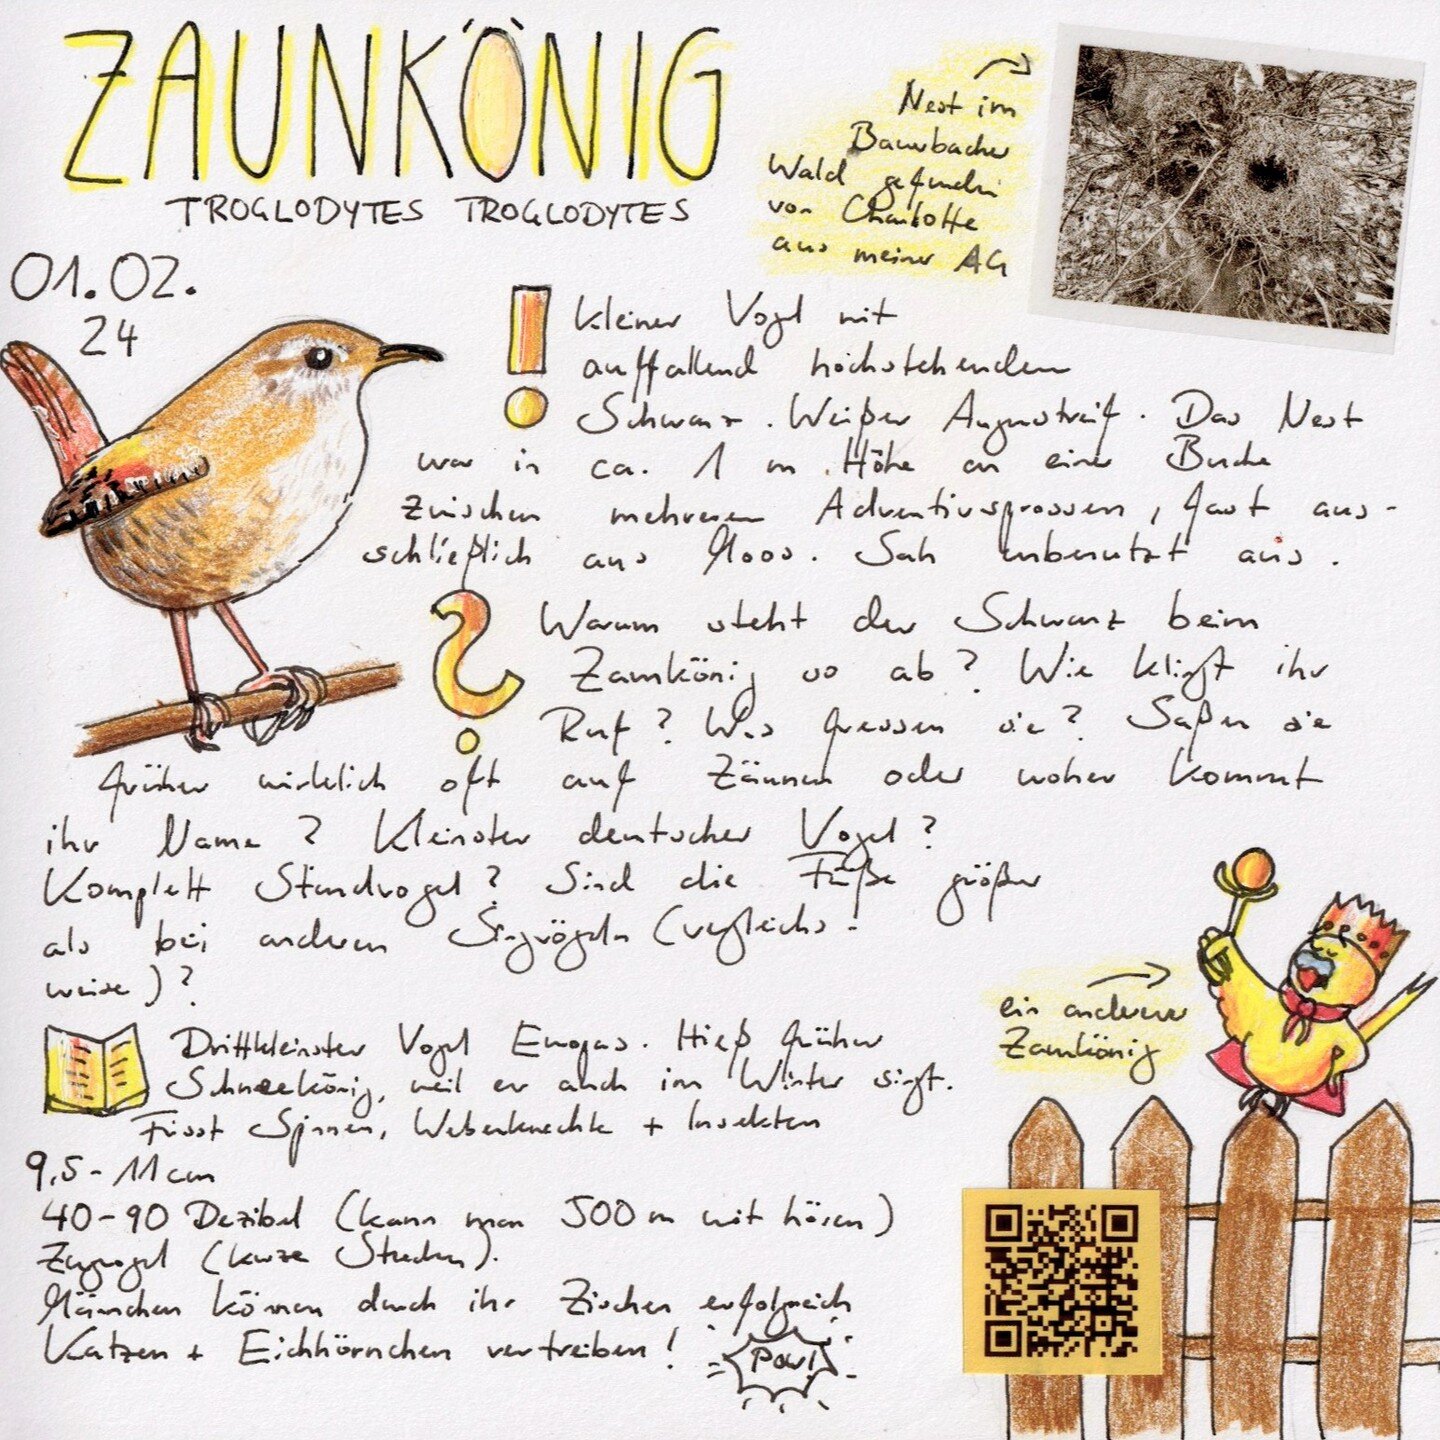 ZAUNKÖNIG
TROGLODYTES TROGLODYTES
01.02.
24
Nest im
Bauerbacher
Wald gefunden
von Charlotte
aus meiner AG
Kleiner Vogel mit
auffallend höchstehenden
Schwanz. Weißer Augenstreif. Das Nest
war in ca. 1 m Höhe an einer Buche
zwischen mehreren Adventivsprossen, fast aus-
schließlich aus Moos. Sah unbenutzt aus.
Warum steht der Schwanz beim
Zaunkönig so ab? Wie klingt ihr
Ruf? Was fressen sie? Saßen sie
früher wirklich oft auf Zäunen oder woher kommt
ihr Name? Kleinster deutscher Vogel?
Komplett Standvogel? Sind die Füße größer
als bei anderen Singvögeln (vergleichs-
weise)?
ein anderer
Zaunkönig
Drittkleinster Vogel Europas. Hieß früher
Schneekönig, weil er auch im Winter singt.
Frisst Spinnen, Weberknechte + Insekten
9,5-11cm
40-90 Dezibel (kann man 500m weit hören)
Zugvogel (kurze Strecken).
Männchen können durch ihr Zischen erfolgreich
Katzen + Eichhörnchen vertreiben!
Pow!